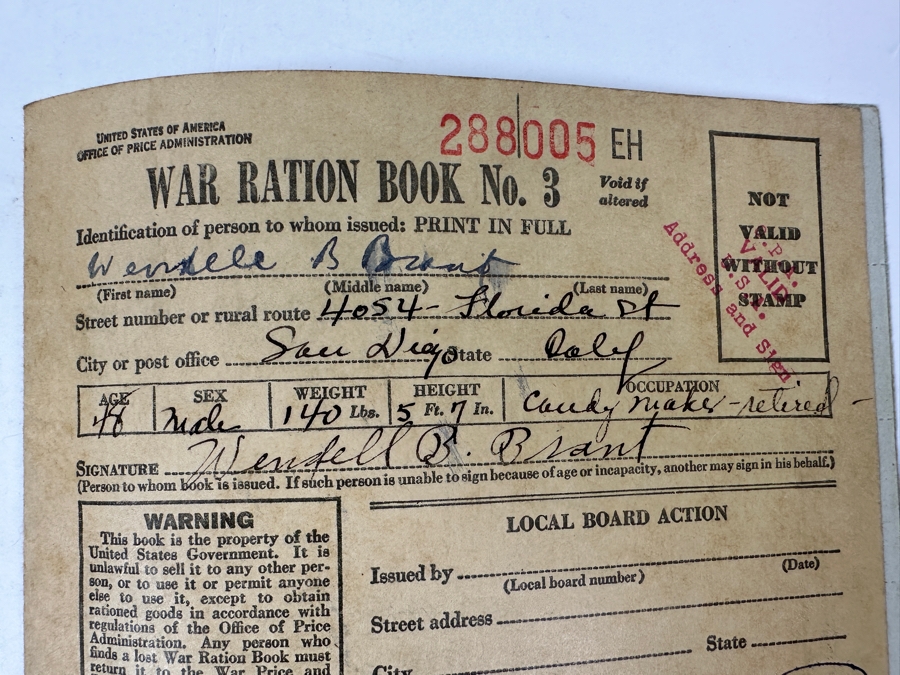 UNITED STATES OF AMERICA
OFFICE OF PRICE ADMINISTRATION
288005 EH
WAR RATION BOOK No. 3
Void if
altered
NOT
VALID
WITHOUT
STAMP
VALID
Address and Sign
Identification of person to whom issued: PRINT IN FULL
Wendell B Brant
(First name) (Middle name) (Last name)
Street number or rural route 4054- Florida St
City or post office San Diego State Calif
AGE SEX WEIGHT HEIGHT OCCUPATION
Male 140 Lbs. 5 Ft. 7 In. Candy Maker - retired -
SIGNATURE Wendell B. Brant
(Person to whom book is issued. If such person is unable to sign because of age or incapacity, another may sign in his behalf.)
WARNING
This book is the property of the
United States Government. It is
unlawful to sell it to any other per-
son, or to use it or permit anyone
else to use it, except to obtain
rationed goods in accordance with
regulations of the Office of Price
Administration. Any person who
finds a lost War Ration Book must
return it to the War Price and
LOCAL BOARD ACTION
Issued by
(Local board number) (Date)
Street address
City State